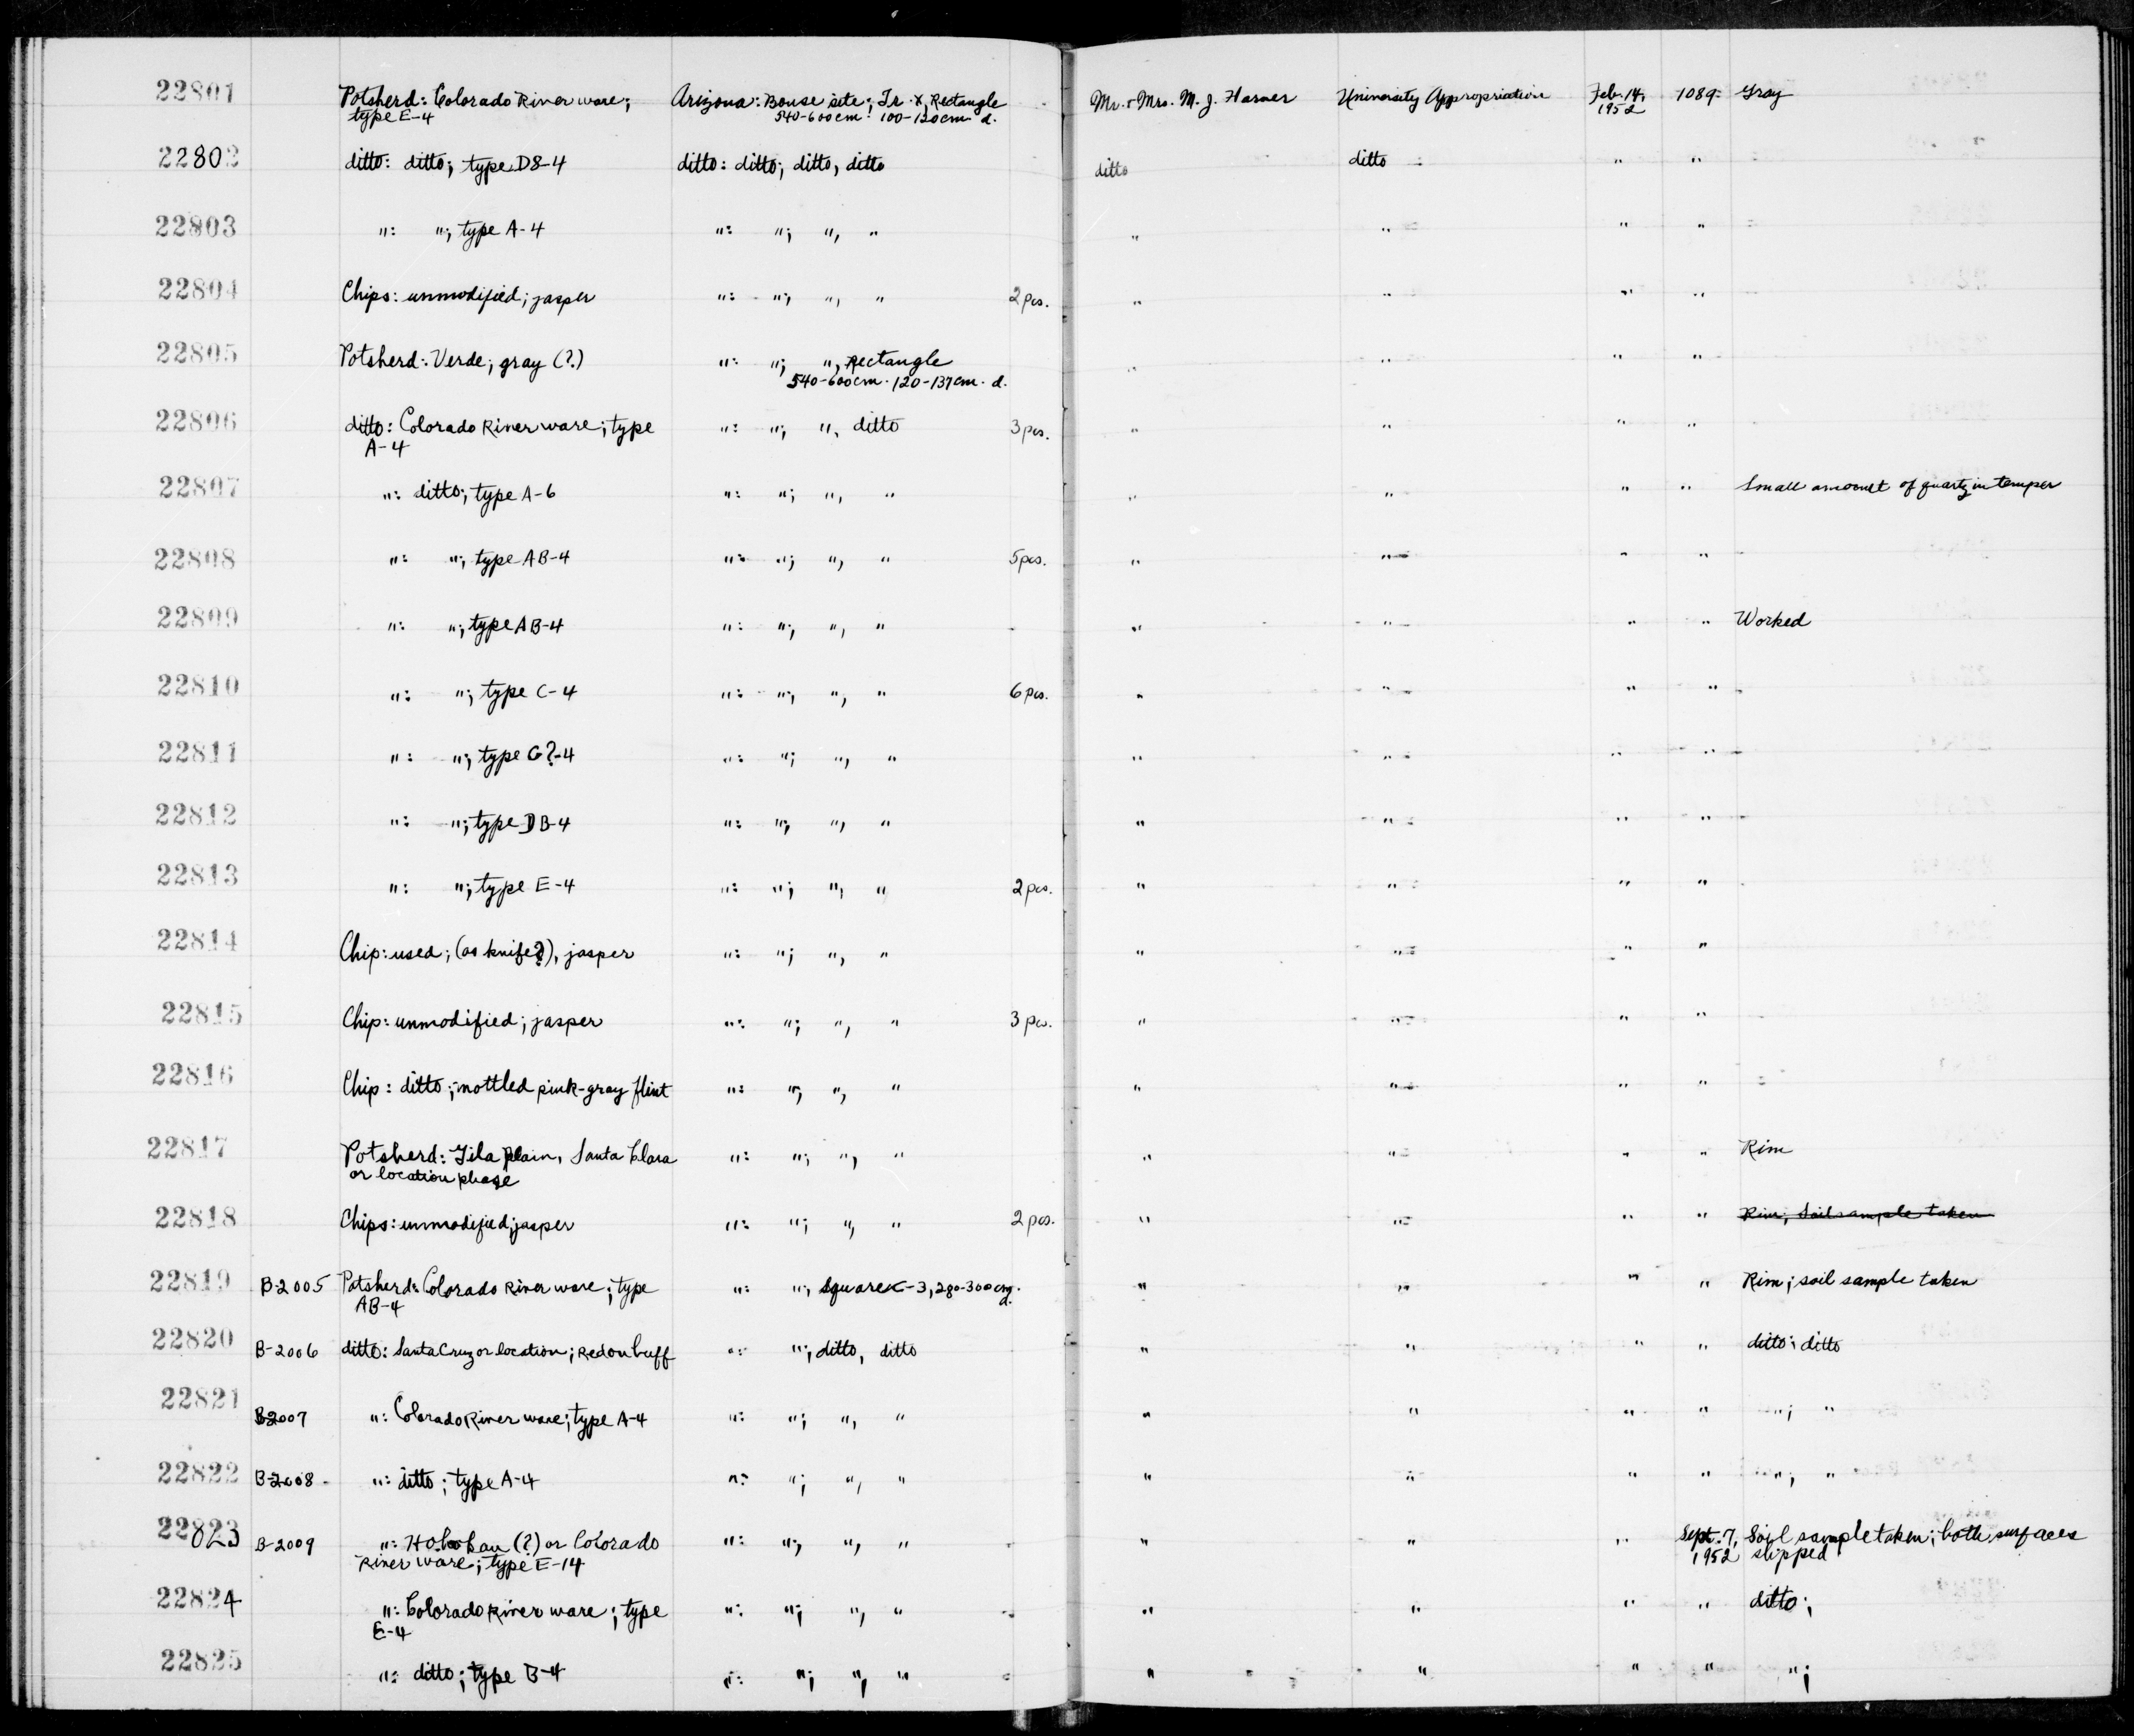 22801 Potsherd: Colorado River ware; Arizona: Bouse site; Tr. X, Rectangle Mr. + Mrs. M. J. Harner University Appropriation Feb. 14, 1089 Gray
type E-4 540-600cm 100-120cm d. 1952
22802 ditto: ditto; type D8-4 ditto: ditto; ditto, ditto ditto ditto " "
22803 ": "; type A-4 ": "; ", " " " " "
22804 Chips: unmodified; jasper ": "; ", " 2 pcs. " " " "
22805 Potsherd: Verde; gray (?) ": "; ", Rectangle " " " "
540-600cm. 120-137cm. d.
22806 ditto: Colorado River ware; type ": "; ", ditto 3 pcs. " " " "
A-4
22807 ": ditto; type A-6 ": "; ", " " " " " Small amount of quartz in temper
22808 ": "; type AB-4 ": "; ", " 5 pcs. " " " "
22809 ": "; type AB-4 ": "; ", " " " " " Worked
22810 ": "; type C-4 ": "; ", " 6 pcs. " " " "
22811 ": "; type G?-4 ": "; ", " " " " "
22812 ": "; type DB-4 ": "; ", " " " " "
22813 ": "; type E-4 ": "; ", " 2 pcs. " " " "
22814 Chip: used; (as knife?), jasper ": "; ", " " " " "
22815 Chip: unmodified; jasper ": "; ", " 3 pcs. " " " "
22816 Chip: ditto; mottled pink-gray flint ": "; ", " " " " "
22817 Potsherd: Gila Plain, Santa Clara ": "; ", " " " " " Rim
or location phase
22818 Chips: unmodified; jasper ": "; ", " 2 pcs. " " " " Rim; Soil sample taken
22819 B-2005 Potsherd: Colorado River ware; type ": "; Square C-3, 280-300cm. " " " " Rim; soil sample taken
AB-4 d.
22820 B-2006 ditto: Santa Cruz or location; Red on buff ": "; ditto, ditto " " " " ditto; ditto
22821 B-2007 ": Colorado River ware; type A-4 ": "; ", " " " " " "; "
22822 B-2008 ": ditto; type A-4 ": "; ", " " " " " "; "
22823 B-2009 ": Hohokau (?) or Colorado ": "; ", " " " " Sept. 7, Soil sample taken; both surfaces
River ware; type E-14 1952 slipped
22824 ": Colorado River ware; type ": "; ", " " " " " ditto;
E-4
22825 ": ditto; type B-4 ": "; ", " " " " " ";